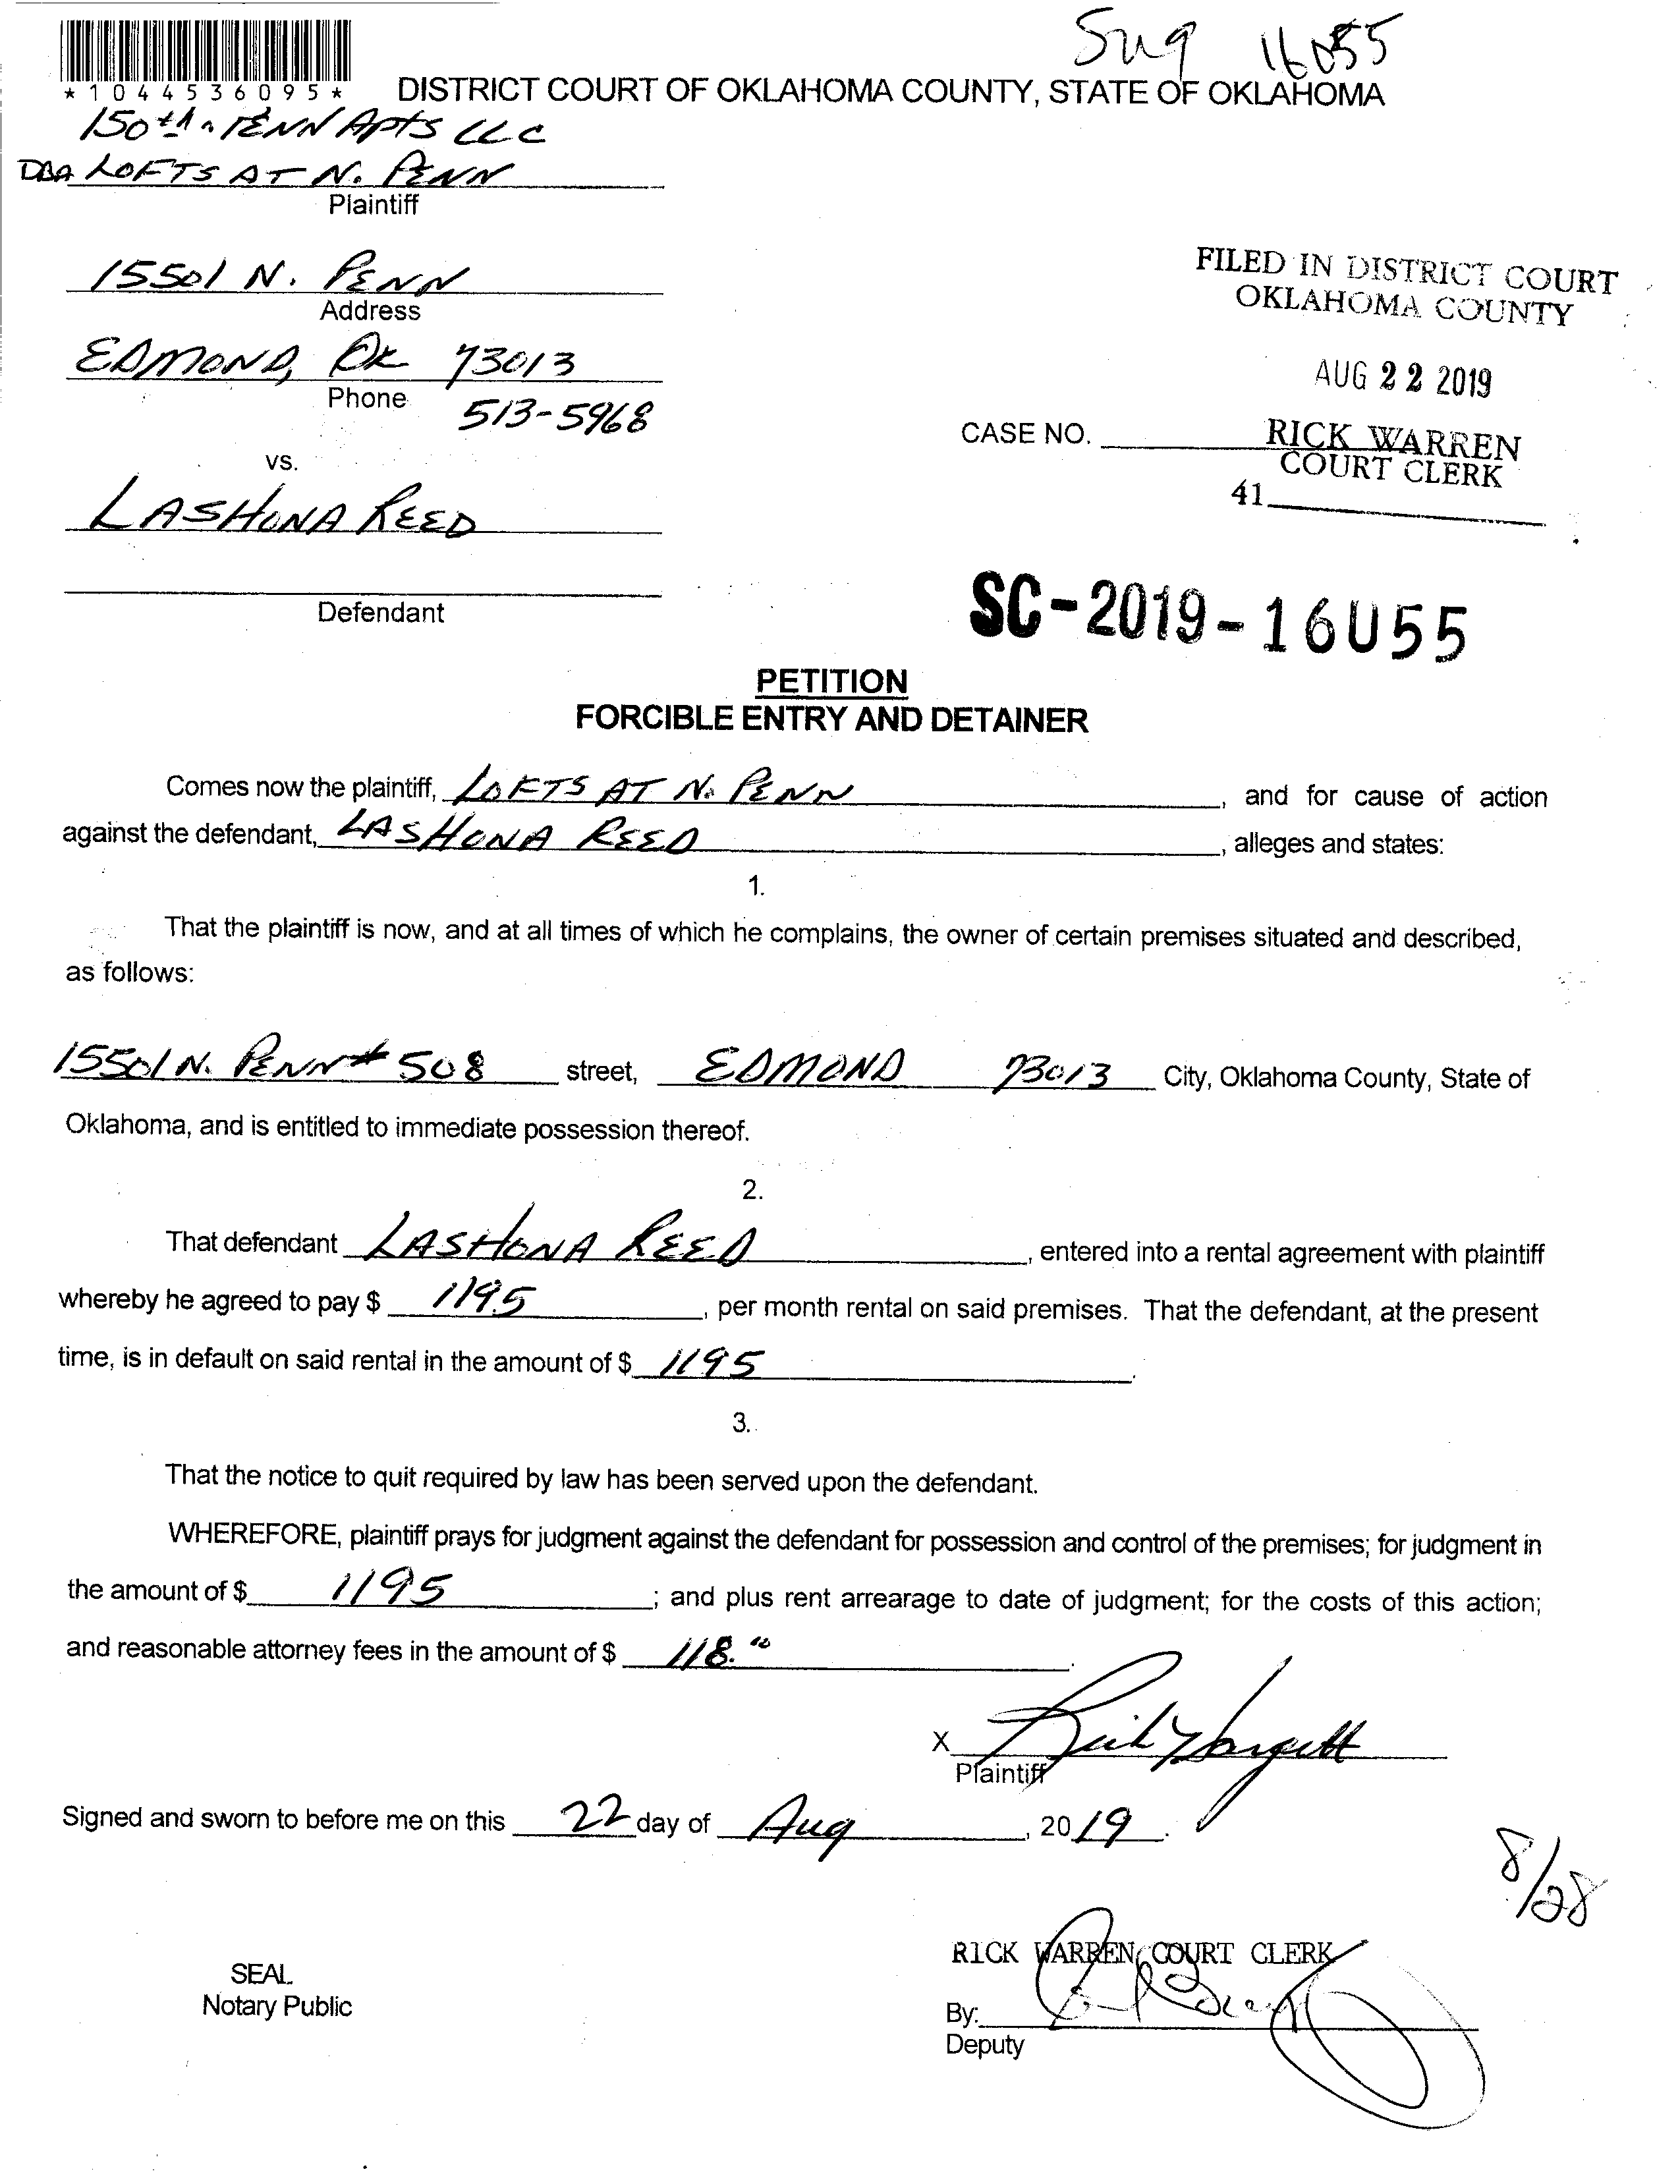 Sug 16055
*1044536095*
DISTRICT COURT OF OKLAHOMA COUNTY, STATE OF OKLAHOMA
150th PENN APTS LLC
DBA LOFTS AT N. PENN
Plaintiff
15501 N. PENN
Address
EDMOND, OK 73013
Phone 513-5968
FILED IN DISTRICT COURT
OKLAHOMA COUNTY
AUG 22 2019
CASE NO. RICK WARREN
COURT CLERK
41
vs.
LASHONA REED
Defendant
SC-2019-16055
PETITION
FORCIBLE ENTRY AND DETAINER
Comes now the plaintiff, LOFTS AT N. PENN, and for cause of action
against the defendant, LASHONA REED, alleges and states:
1.
That the plaintiff is now, and at all times of which he complains, the owner of certain premises situated and described,
as follows:
15501 N. PENN # 508 street, EDMOND 73013 City, Oklahoma County, State of
Oklahoma, and is entitled to immediate possession thereof.
2.
That defendant LASHONA REED, entered into a rental agreement with plaintiff
whereby he agreed to pay $ 1195, per month rental on said premises. That the defendant, at the present
time, is in default on said rental in the amount of $ 1195.
3.
That the notice to quit required by law has been served upon the defendant.
WHEREFORE, plaintiff prays for judgment against the defendant for possession and control of the premises; for judgment in
the amount of $ 1195; and plus rent arrearage to date of judgment; for the costs of this action;
and reasonable attorney fees in the amount of $ 118.
X
Plaintiff
Signed and sworn to before me on this 22 day of Aug, 2019.
8/28
RICK WARREN, COURT CLERK
SEAL
Notary Public
By:
Deputy